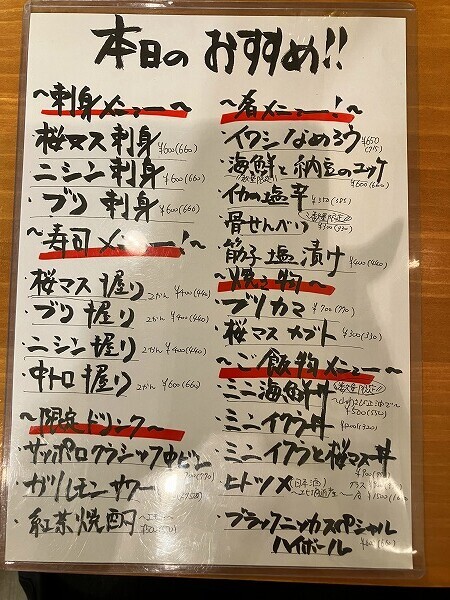 本日の おすすめ!!
〜刺身メニュー〜
・桜マス刺身 ¥600(660)
・ニシン刺身 ¥600(660)
・ブリ 刺身 ¥600(660)
〜寿司メニュー!〜
・桜マス握り 2かん ¥400(440)
・ブリ握り 2かん ¥400(440)
・ニシン握り 2かん ¥400(440)
・中トロ握り 2かん ¥600(660)
〜限定ドリンク〜
・サッポロクラシック中ビン (770)
・ガリレモンサワー
・紅茶焼酎
〜肴メニュー!〜
・イワシなめろう ¥650(715)
・海鮮と納豆のユッケ ¥600(660)
・イカの塩辛 ¥350(385)
・骨せんべい 数量限定!! ¥300(330)
・筋子塩漬け ¥400(440)
〜焼き物〜
・ブリカマ ¥700(770)
・桜マスカブト ¥300(330)
〜ご飯物メニュー〜
・ミニ海鮮丼 数量限定!!
¥500(550)
・ミニイクラ丼 (1320)
・ミニイクラと桜マス丼
・ヒトツメ(日本酒) グラス
・ブラックニッカスペシャル
ハイボール